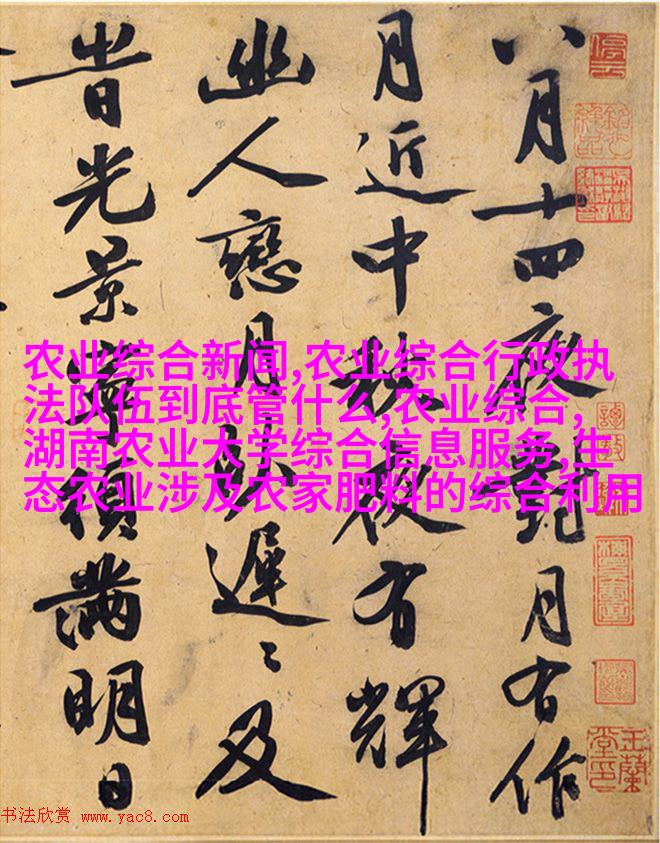 八月十四夜翫月有作
月近中秋夜有輝
幽人戀月遲〻及
旹光景寧須滿明日
停雲
玉蘭堂印
农业综合新闻,农业综合行政执
法队伍到底管什么,农业综合,
湖南农业大学综合信息服务,生
态农业涉及农家肥料的综合利用
书法欣赏 www.yac8.com